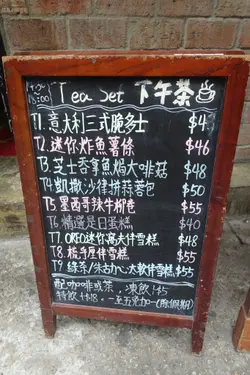 18:00
Tea Set 下午茶
T1. 意大利三式脆多士 $4
T2. 迷你炸魚薯條 $46
T3. 芝士吞拿魚焗大啡菇 $48
T4. 凱撒沙律拼蒜蓉包 $50
T5. 墨西哥辣牛柳卷 $55
T6 精選是日蛋糕 $40
T7. OREO迷你窩夫伴雪糕 $48
T8. 梳乎厘伴雪糕 $55
T9 綠茶/朱古力心太軟伴雪糕 $55
配咖啡或茶，凍飲+5
特飲+$18，一至五免加一(除假期)